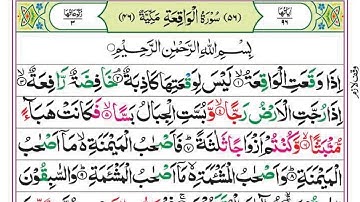 اٰیَاتُهَا ٩٦ (٥٦) سُوْرَةُ الْوَاقِعَةِ مَكِّیَّةٌ (٤٦) رُكُوْعَاتُهَا ٣
بِسْمِ اللّٰهِ الرَّحْمٰنِ الرَّحِیْمِ
وقف لازم
اِذَا وَقَعَتِ الْوَاقِعَةُ ۙ﴿۱﴾ لَیْسَ لِوَقْعَتِهَا كَاذِبَةٌ ۘ﴿۲﴾ خَافِضَةٌ رَّافِعَةٌ ۙ﴿۳﴾
اِذَا رُجَّتِ الْاَرْضُ رَجًّا ۙ﴿۴﴾ وَّ بُسَّتِ الْجِبَالُ بَسًّا ۙ﴿۵﴾ فَكَانَتْ هَبَآءً
مُّنْۢبَثًّا ۙ﴿۶﴾ وَّ كُنْتُمْ اَزْوَاجًا ثَلٰثَةً ؕ﴿۷﴾ فَاَصْحٰبُ الْمَیْمَنَةِ ۙ۬ مَاۤ اَصْحٰبُ
الْمَیْمَنَةِ ؕ﴿۸﴾ وَ اَصْحٰبُ الْمَشْـَٔمَةِ ۙ۬ مَاۤ اَصْحٰبُ الْمَشْـَٔمَةِ ؕ﴿۹﴾ وَ السّٰبِقُوْنَ